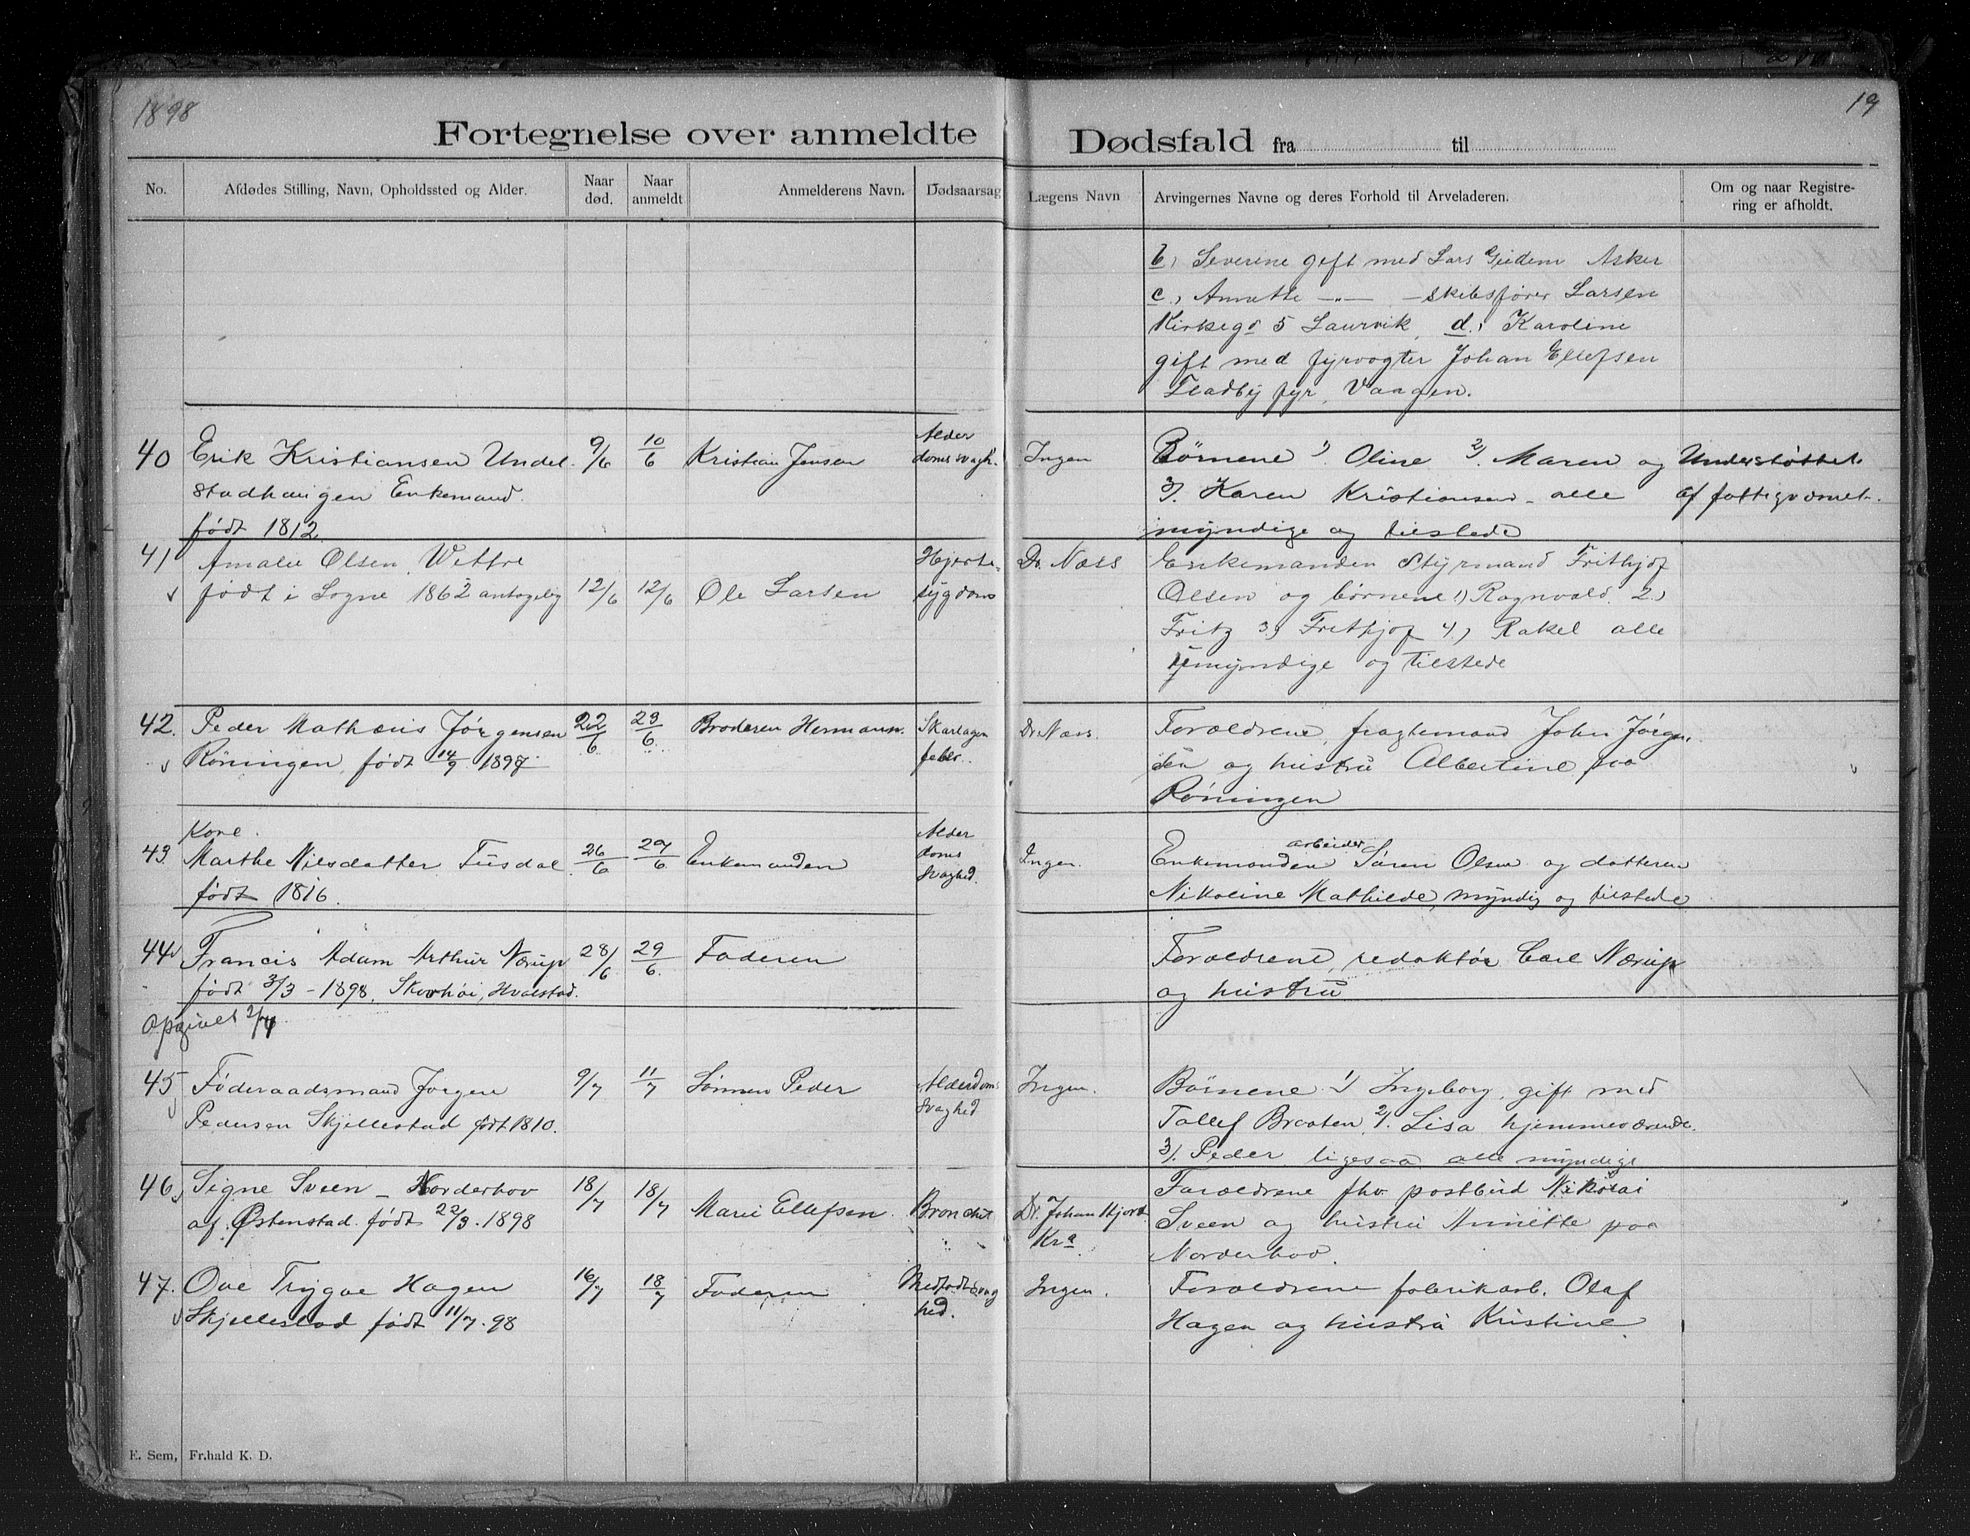 1898
19
Fortegnelse over anmeldte Dødsfald fra til
No.
Afdødes Stilling, Navn, Opholdssted og Alder.
Naar død.
Naar anmeldt
Anmelderens Navn.
Dødsaarsag
Lægens Navn
Arvingernes Navne og deres Forhold til Arveladeren.
Om og naar Registrering er afholdt.
b, Severine gift med Lars Gudem Asker
c, Annette —"— - skibsfører Larsen
Kirkegd 5 Laurvik, d, Karoline
gift med fyrvogter Johan Ellefsen
Fladby fyr, Vaagen.
40 Erik Kristiansen Undel- 9/6 10/6 Kristian Jensen Alder Ingen Børnene 1). Oline 2). Maren og Understøttet
stadhaugen Enkemand. domssvagh. 3). Karen Kristiansen - alle af fattigvæsnet.
født 1812. myndige og tilstede
41 Amalie Olsen, Vettre Hjerte- Dr. Næss Enkemanden Styrmand Frithjof
født i Sogne 1862 antagelig 12/6 12/6 Ole Larsen sygdom Olsen og børnene 1) Ragnvald 2,
Fritz 3, Frithjof 4, Rakel alle
umyndige og tilstede
42. Peder Mathæus Jørgensen 22/6 23/6 Broderen Hermann. Skarlagen Dr. Næss. Forældrene, fragtemand John Jørgen-
Røningen, født 14/9 1897. feber. sen og hustru Albertine paa
Røningen
Kone. Alder arbeider
43. Marthe Nilsdatter Tusdal. 26/6 29/6 Enkemanden doms Ingen. Enkemanden Søren Olsen og datteren
født 1816. svaghed. Nikoline Mathilde, myndig og tilstede
44 Francis Adam Arthur Nærup 28/6 29/6. Faderen Forældrene, redaktør Carl Nærup
født 3/3 - 1898, Skovhøi, Hvalstad. og hustru
Opgivet
45 Føderaadsmand Jørgen 9/7 11/7 Sønnen Peder Alderdom Ingen. Børnene 1) Ingeborg, gift med
Pedersen Skjellestad født 1810. svaghed Tollef Braaten, 2). Lisa hjemmeværende.
3). Peder ligesaa alle myndige
46, Signe Sveen - Norderhov 18/7 18/7 Marie Ellefsen. Bronchit Dr. Johan Hjort Forældrene fhv. postbud Nikolai
af Østenstad. født 22/3. 1898 Kra Sveen og hustru Annette paa
Norderhov.
47. Ove Trygve Hagen 16/7 18/7 Faderen Medfødt svag Ingen. Forældrene fabrikarb. Olaf
Skjellestad født 11/7. 98 hed. Hagen og hustru Kristine.
E. Sem, Fr.hald K. D.